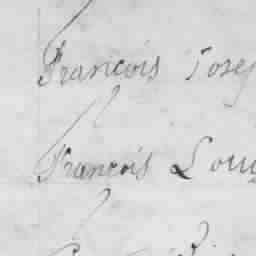 François Jose
François Loui